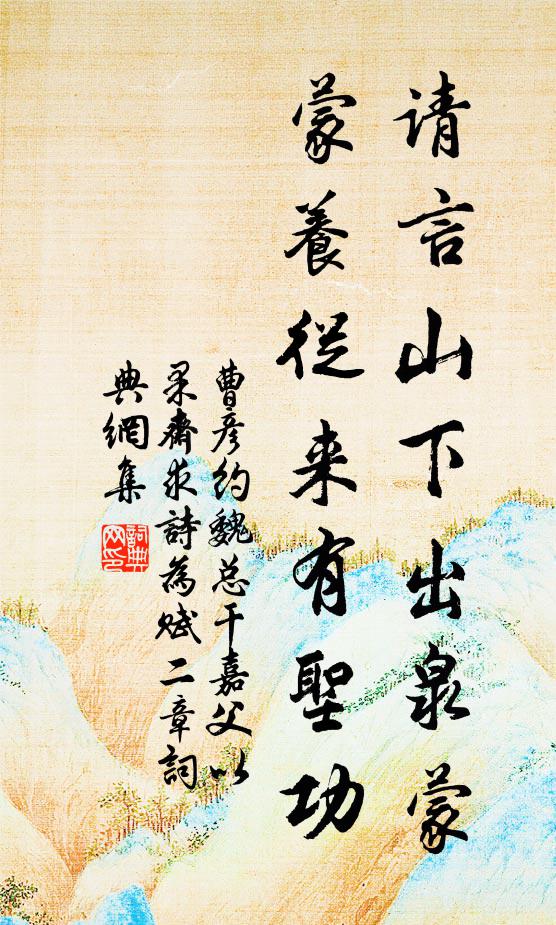 请言山下出泉蒙
蒙養從来有聖功
曹彦约魏总干嘉父以
果齋求詩為赋二章詞
典網集
詞典
网印